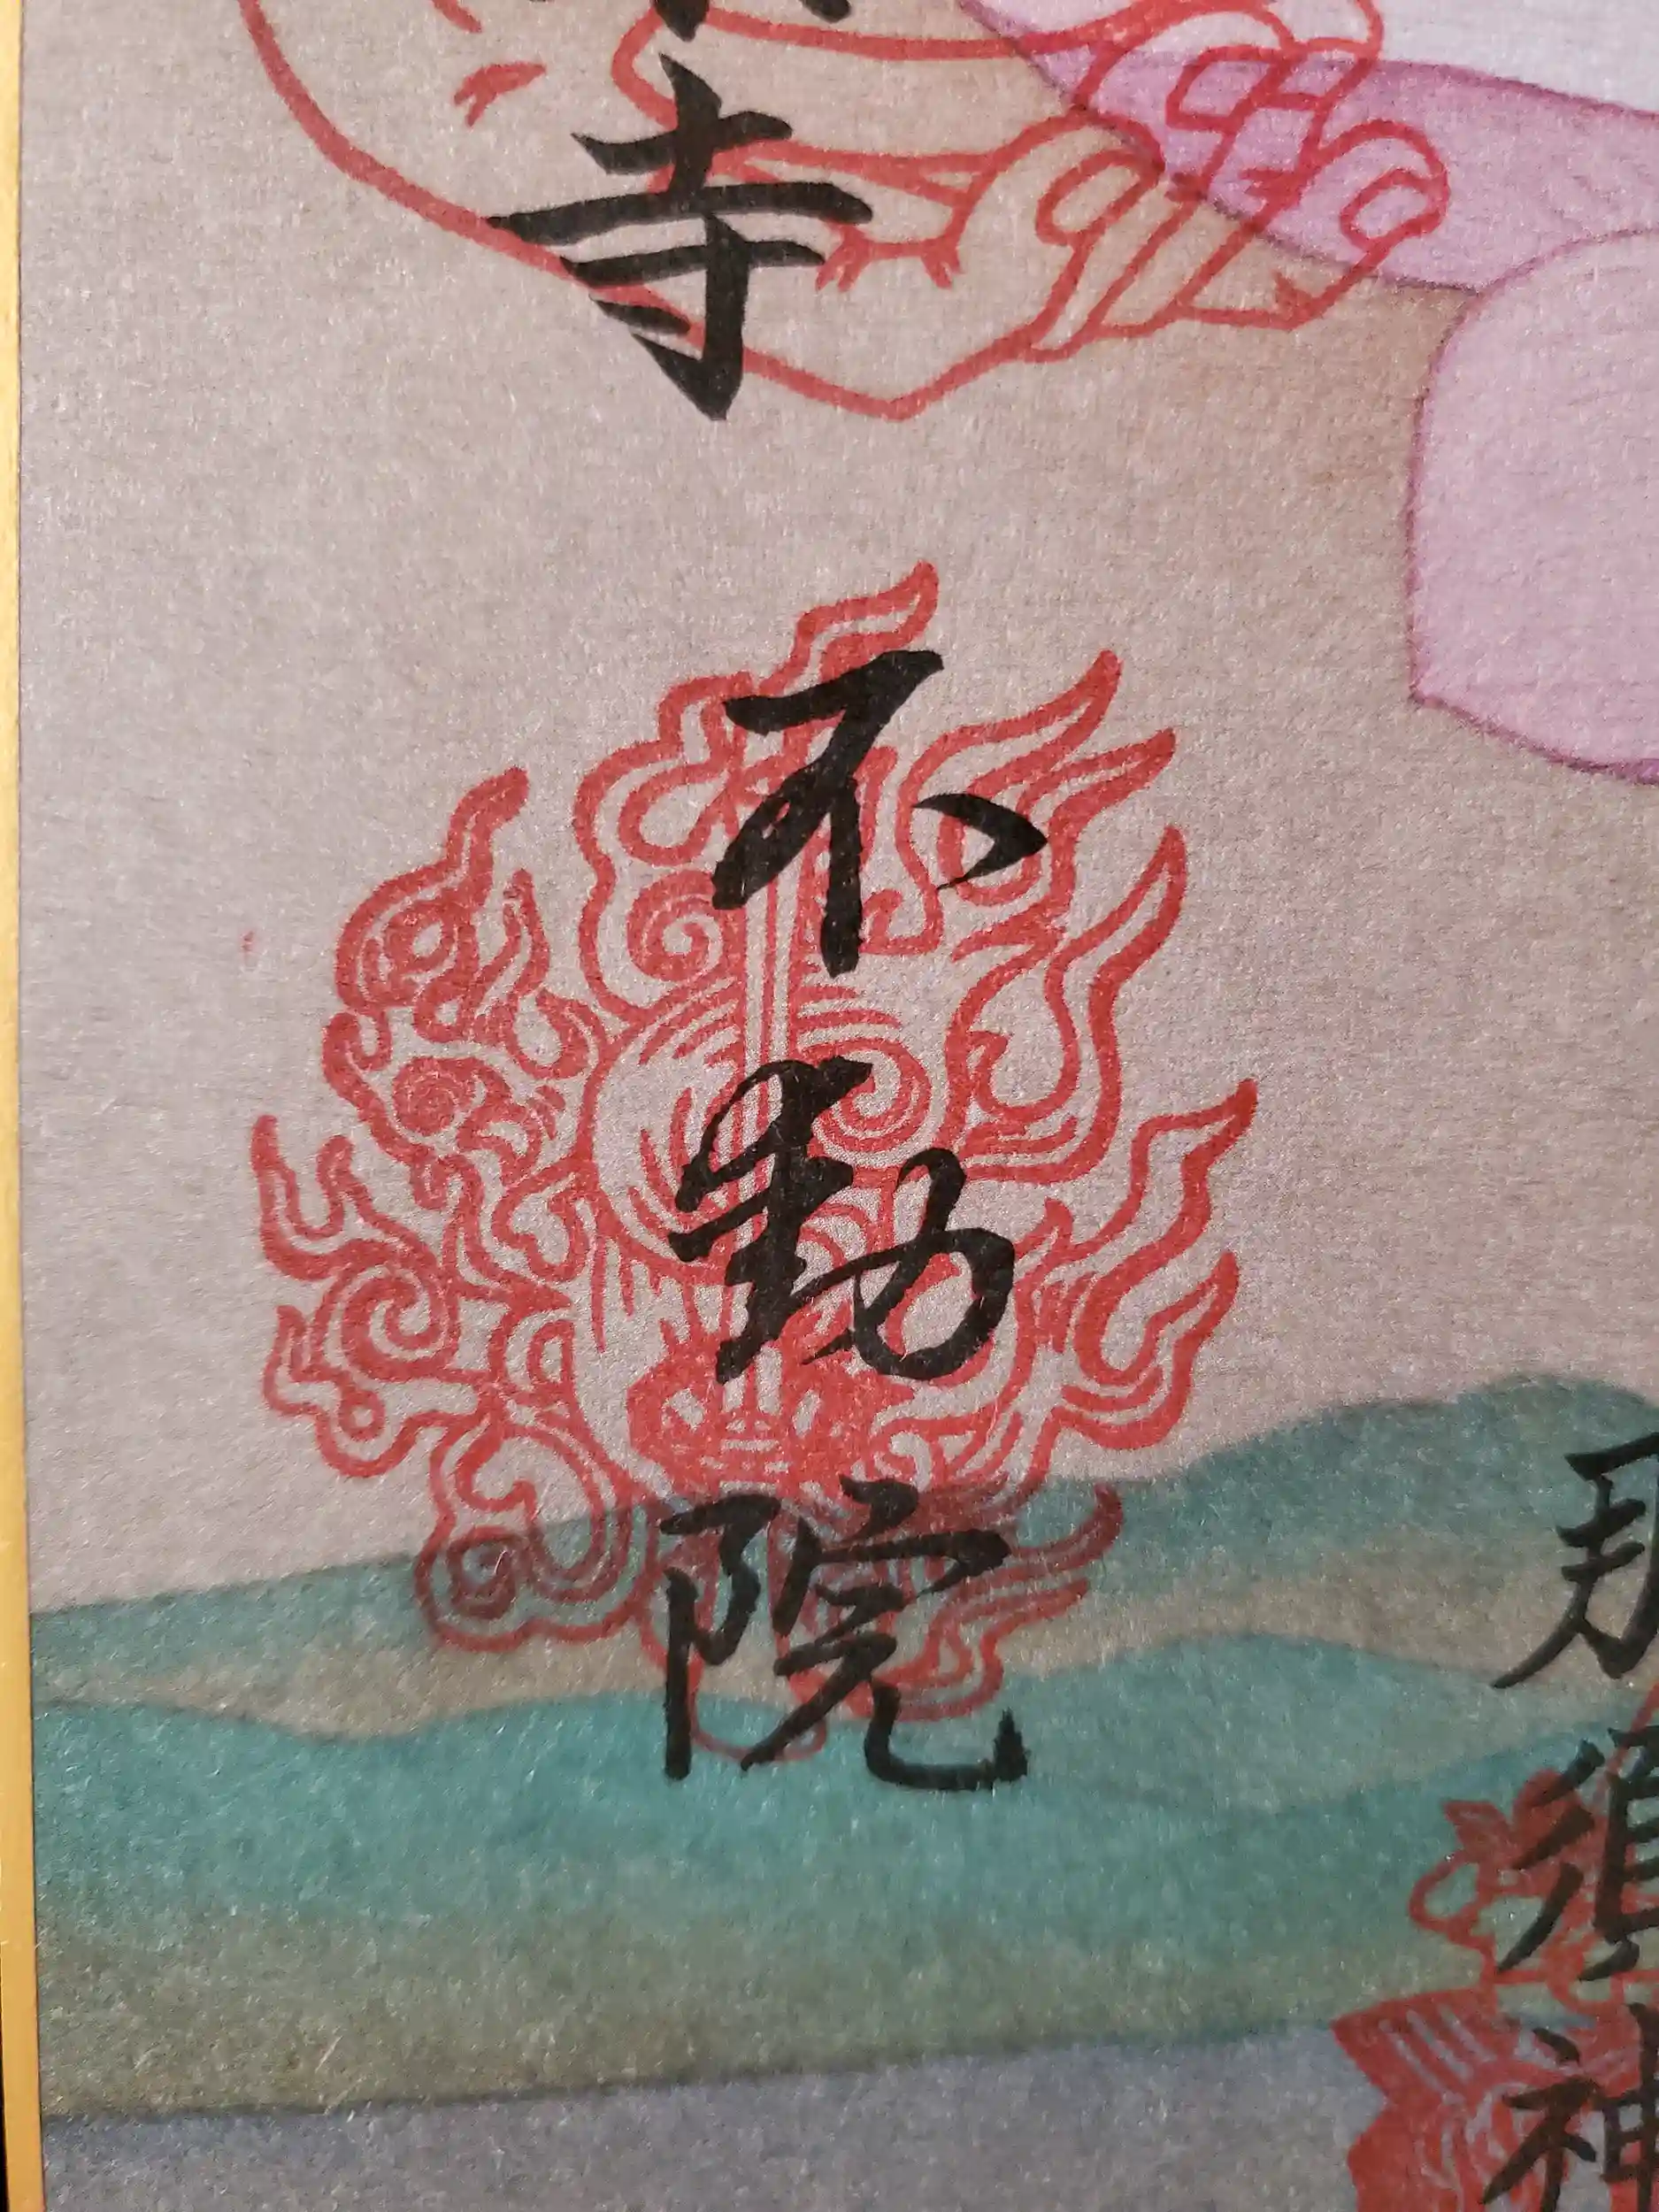 那須神
寺
不動院